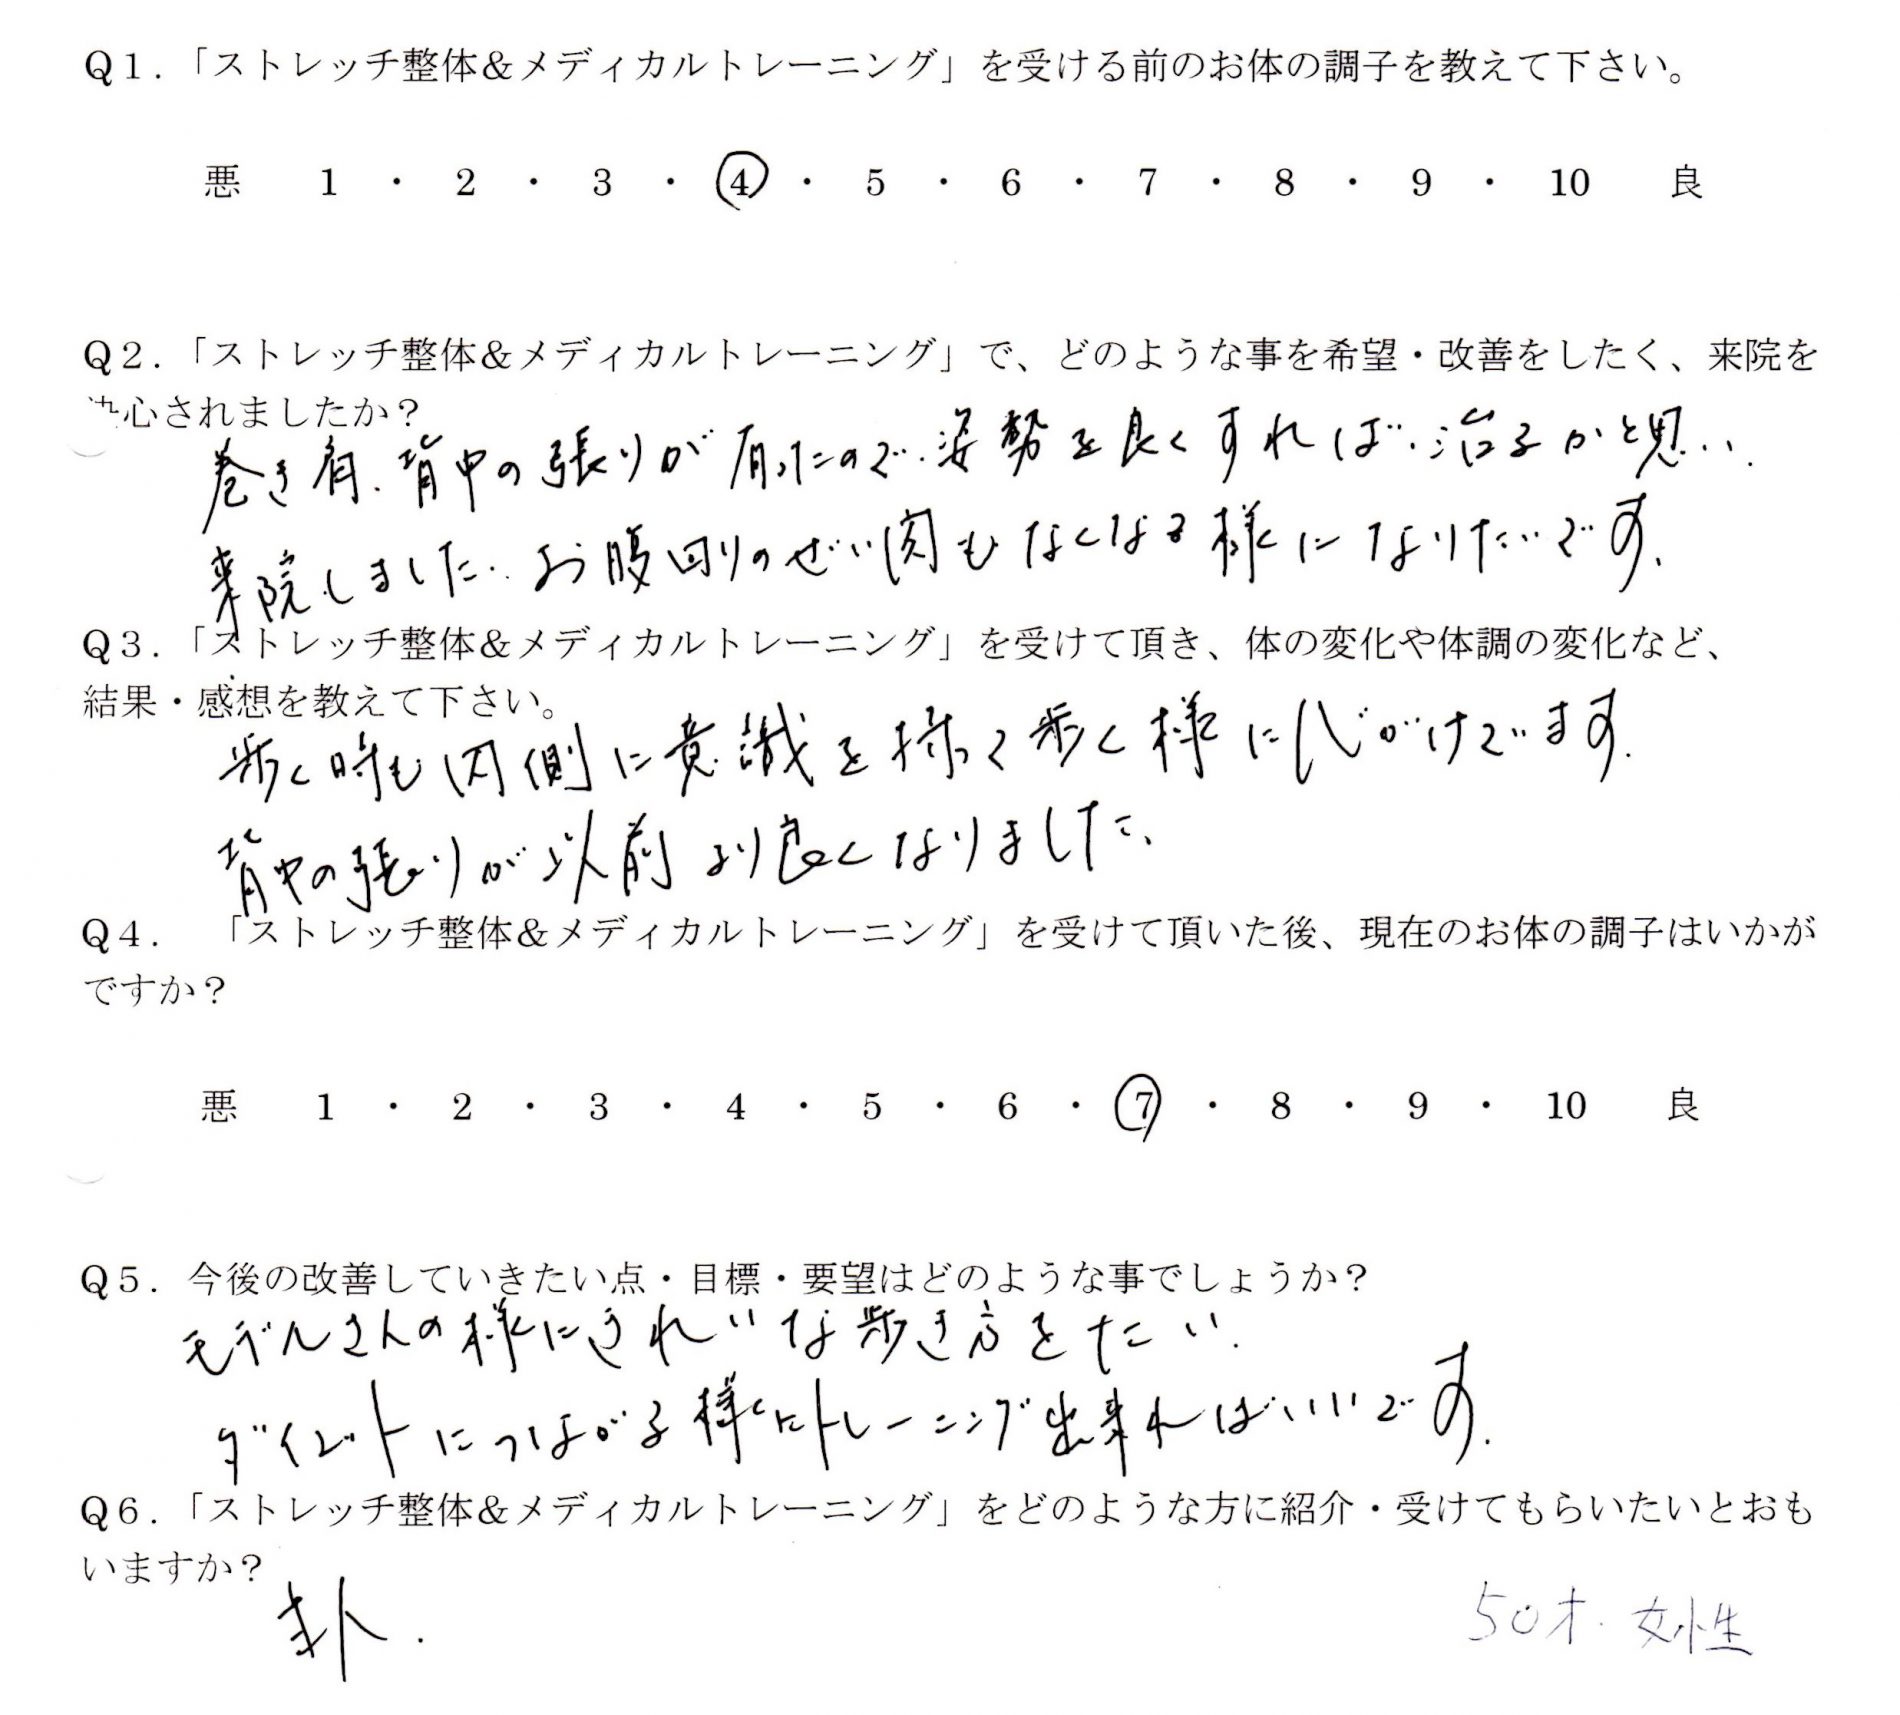 Q1.「ストレッチ整体＆メディカルトレーニング」を受ける前のお体の調子を教えて下さい。
悪 1 ・ 2 ・ 3 ・ 4 ・ 5 ・ 6 ・ 7 ・ 8 ・ 9 ・ 10 良
Q2.「ストレッチ整体＆メディカルトレーニング」で、どのような事を希望・改善をしたく、来院を
決心されましたか？
巻き肩、背中の張りが有ったので、姿勢を良くすれば、治るかと思い、
来院しました。お腹回りのぜい肉もなくなる様になりたいです。
Q3.「ストレッチ整体＆メディカルトレーニング」を受けて頂き、体の変化や体調の変化など、
結果・感想を教えて下さい。
歩く時も内側に意識を持って歩く様に心がけています。
背中の張りが以前より良くなりました。
Q4.　「ストレッチ整体＆メディカルトレーニング」を受けて頂いた後、現在のお体の調子はいかが
ですか？
悪 1 ・ 2 ・ 3 ・ 4 ・ 5 ・ 6 ・ 7 ・ 8 ・ 9 ・ 10 良
Q5. 今後の改善していきたい点・目標・要望はどのような事でしょうか？
モデルさんの様にきれいな歩き方をたい。
ダイエットにつながる様にトレーニング出来ればいいです。
Q6.「ストレッチ整体＆メディカルトレーニング」をどのような方に紹介・受けてもらいたいとおも
いますか？
50才．女性